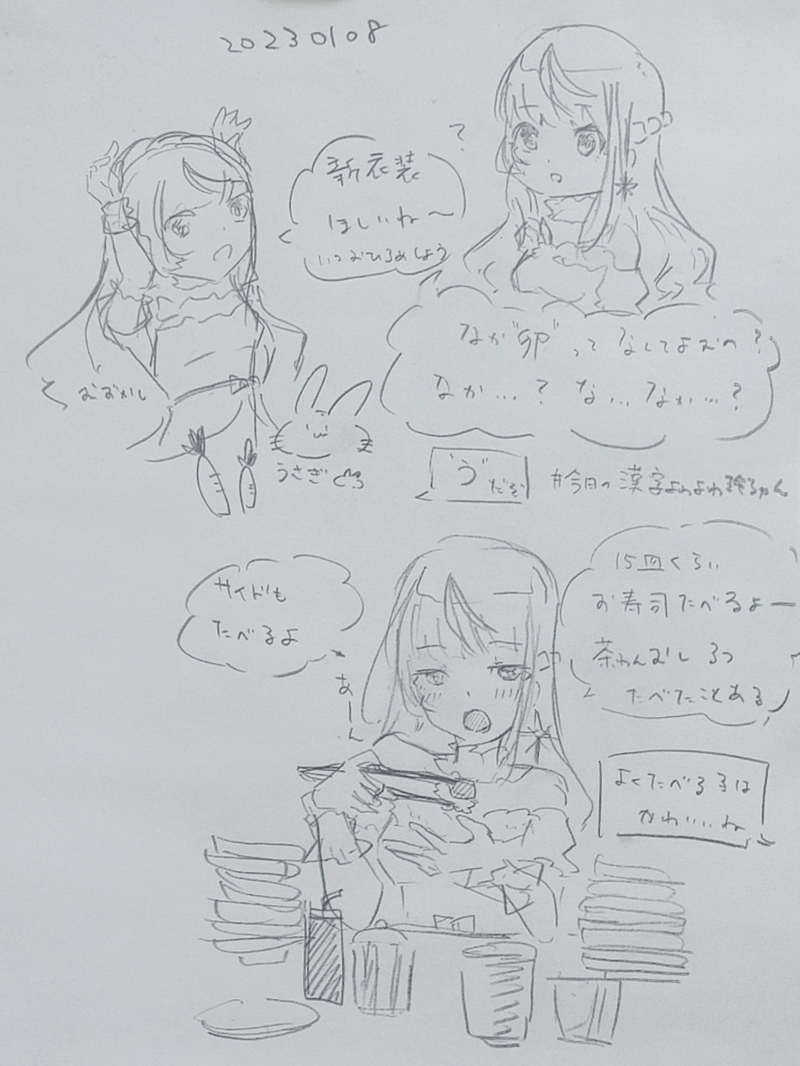 20230108
新衣装
ほしいね〜
いつおひろめしよう
?
なが"卵"ってなしてよぶの?
なか…?な…なか…?
"う"だぞ
#今日の漢字よわよわ
うさぎ
サイドも
たべるよ
あーん
15皿くらい
お寿司たべるよー
茶わんむし 3つ
たべたことある
よくたべる子は
かわいいね